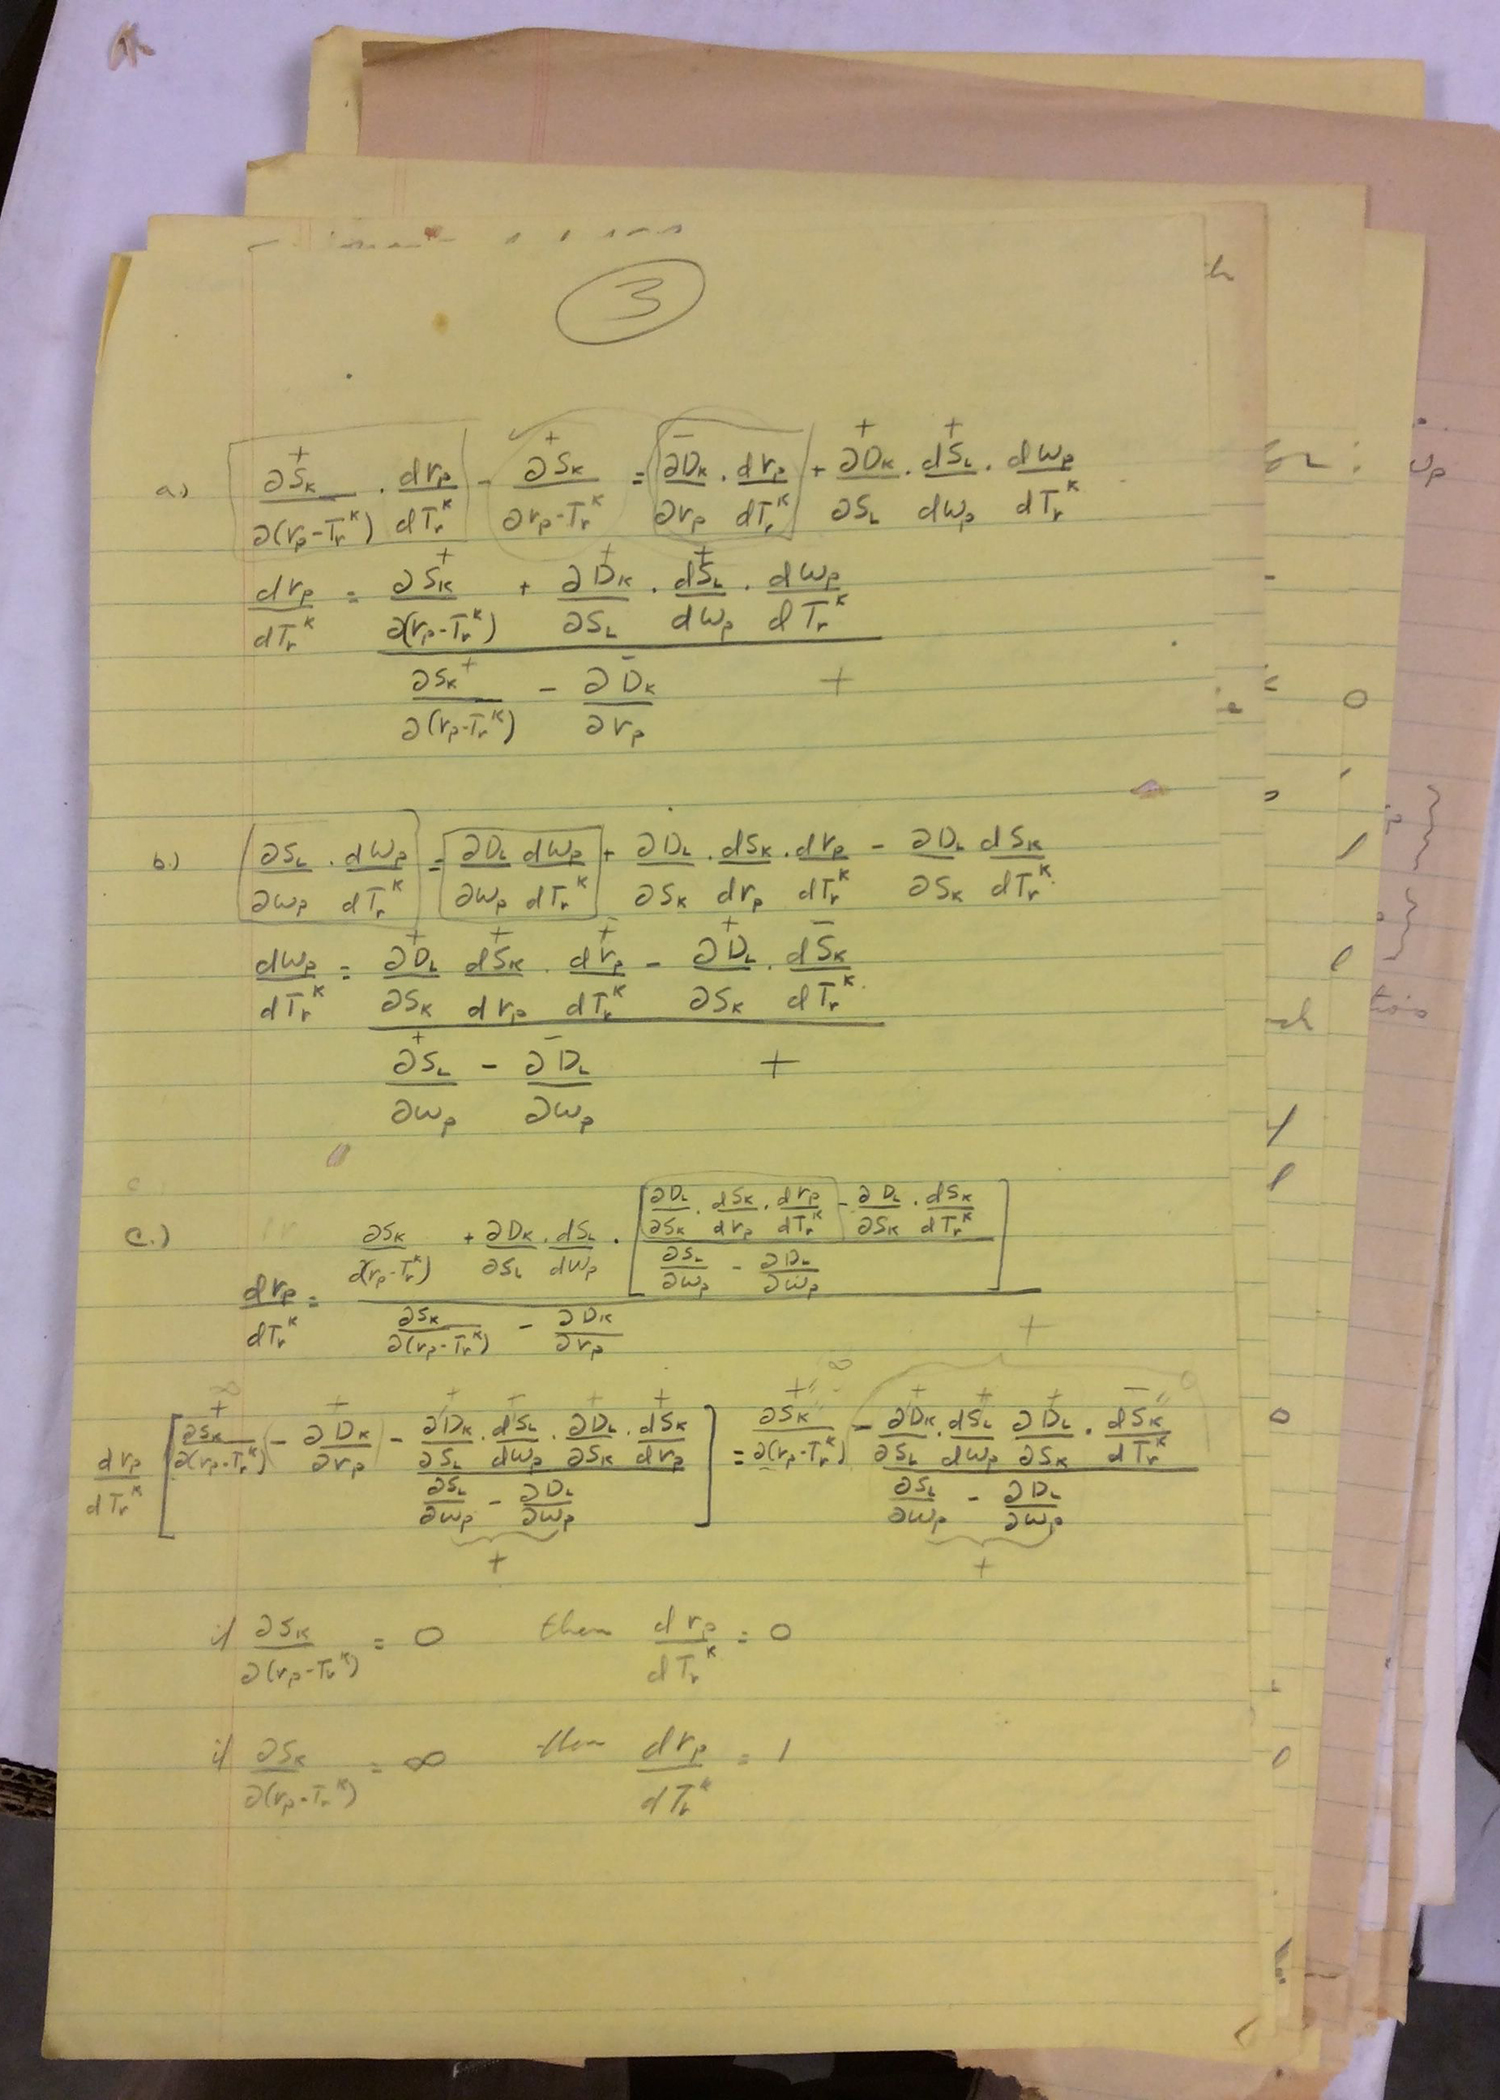 3
a) ∂S_K/∂(r_p-T_r^K) · dr_p/dT_r^K - ∂S_K/∂r_p-T_r^K = ∂D_K/∂r_p · dr_p/dT_r^K + ∂D_K/∂S_L · dS_L/dw_p · dw_p/dT_r^K
dr_p/dT_r^K = [∂S_K/∂(r_p-T_r^K) + ∂D_K/∂S_L · dS_L/dw_p · dw_p/dT_r^K] / [∂S_K/∂(r_p-T_r^K) - ∂D_K/∂r_p] +
b.) ∂S_L/∂w_p · dw_p/dT_r^K = ∂D_L/∂w_p dw_p/dT_r^K + ∂D_L/∂S_K · dS_K/dr_p · dr_p/dT_r^K - ∂D_L/∂S_K dS_K/dT_r^K
dw_p/dT_r^K = [∂D_L/∂S_K dS_K/dr_p · dr_p/dT_r^K - ∂D_L/∂S_K · dS_K/dT_r^K] / [∂S_L/∂w_p - ∂D_L/∂w_p] +
c.) dr_p/dT_r^K = [∂S_K/∂(r_p-T_r^K) + ∂D_K/∂S_L · dS_L/dw_p · [(∂D_L/∂S_K · dS_K/dr_p · dr_p/dT_r^K - ∂D_L/∂S_K · dS_K/dT_r^K) / (∂S_L/∂w_p - ∂D_L/∂w_p)]] / [∂S_K/∂(r_p-T_r^K) - ∂D_K/∂r_p] +
dr_p/dT_r^K [∂S_K/∂(r_p-T_r^K) - ∂D_K/∂r_p - (∂D_K/∂S_L · dS_L/dw_p · ∂D_L/∂S_K · dS_K/dr_p) / (∂S_L/∂w_p - ∂D_L/∂w_p)] = ∂S_K/∂(r_p-T_r^K) - (∂D_K/∂S_L · dS_L/dw_p ∂D_L/∂S_K · dS_K/dT_r^K) / (∂S_L/∂w_p - ∂D_L/∂w_p)
+ +
if ∂S_K/∂(r_p-T_r^K) = 0 then dr_p/dT_r^K = 0
if ∂S_K/∂(r_p-T_r^K) = ∞ then dr_p/dT_r^K = 1